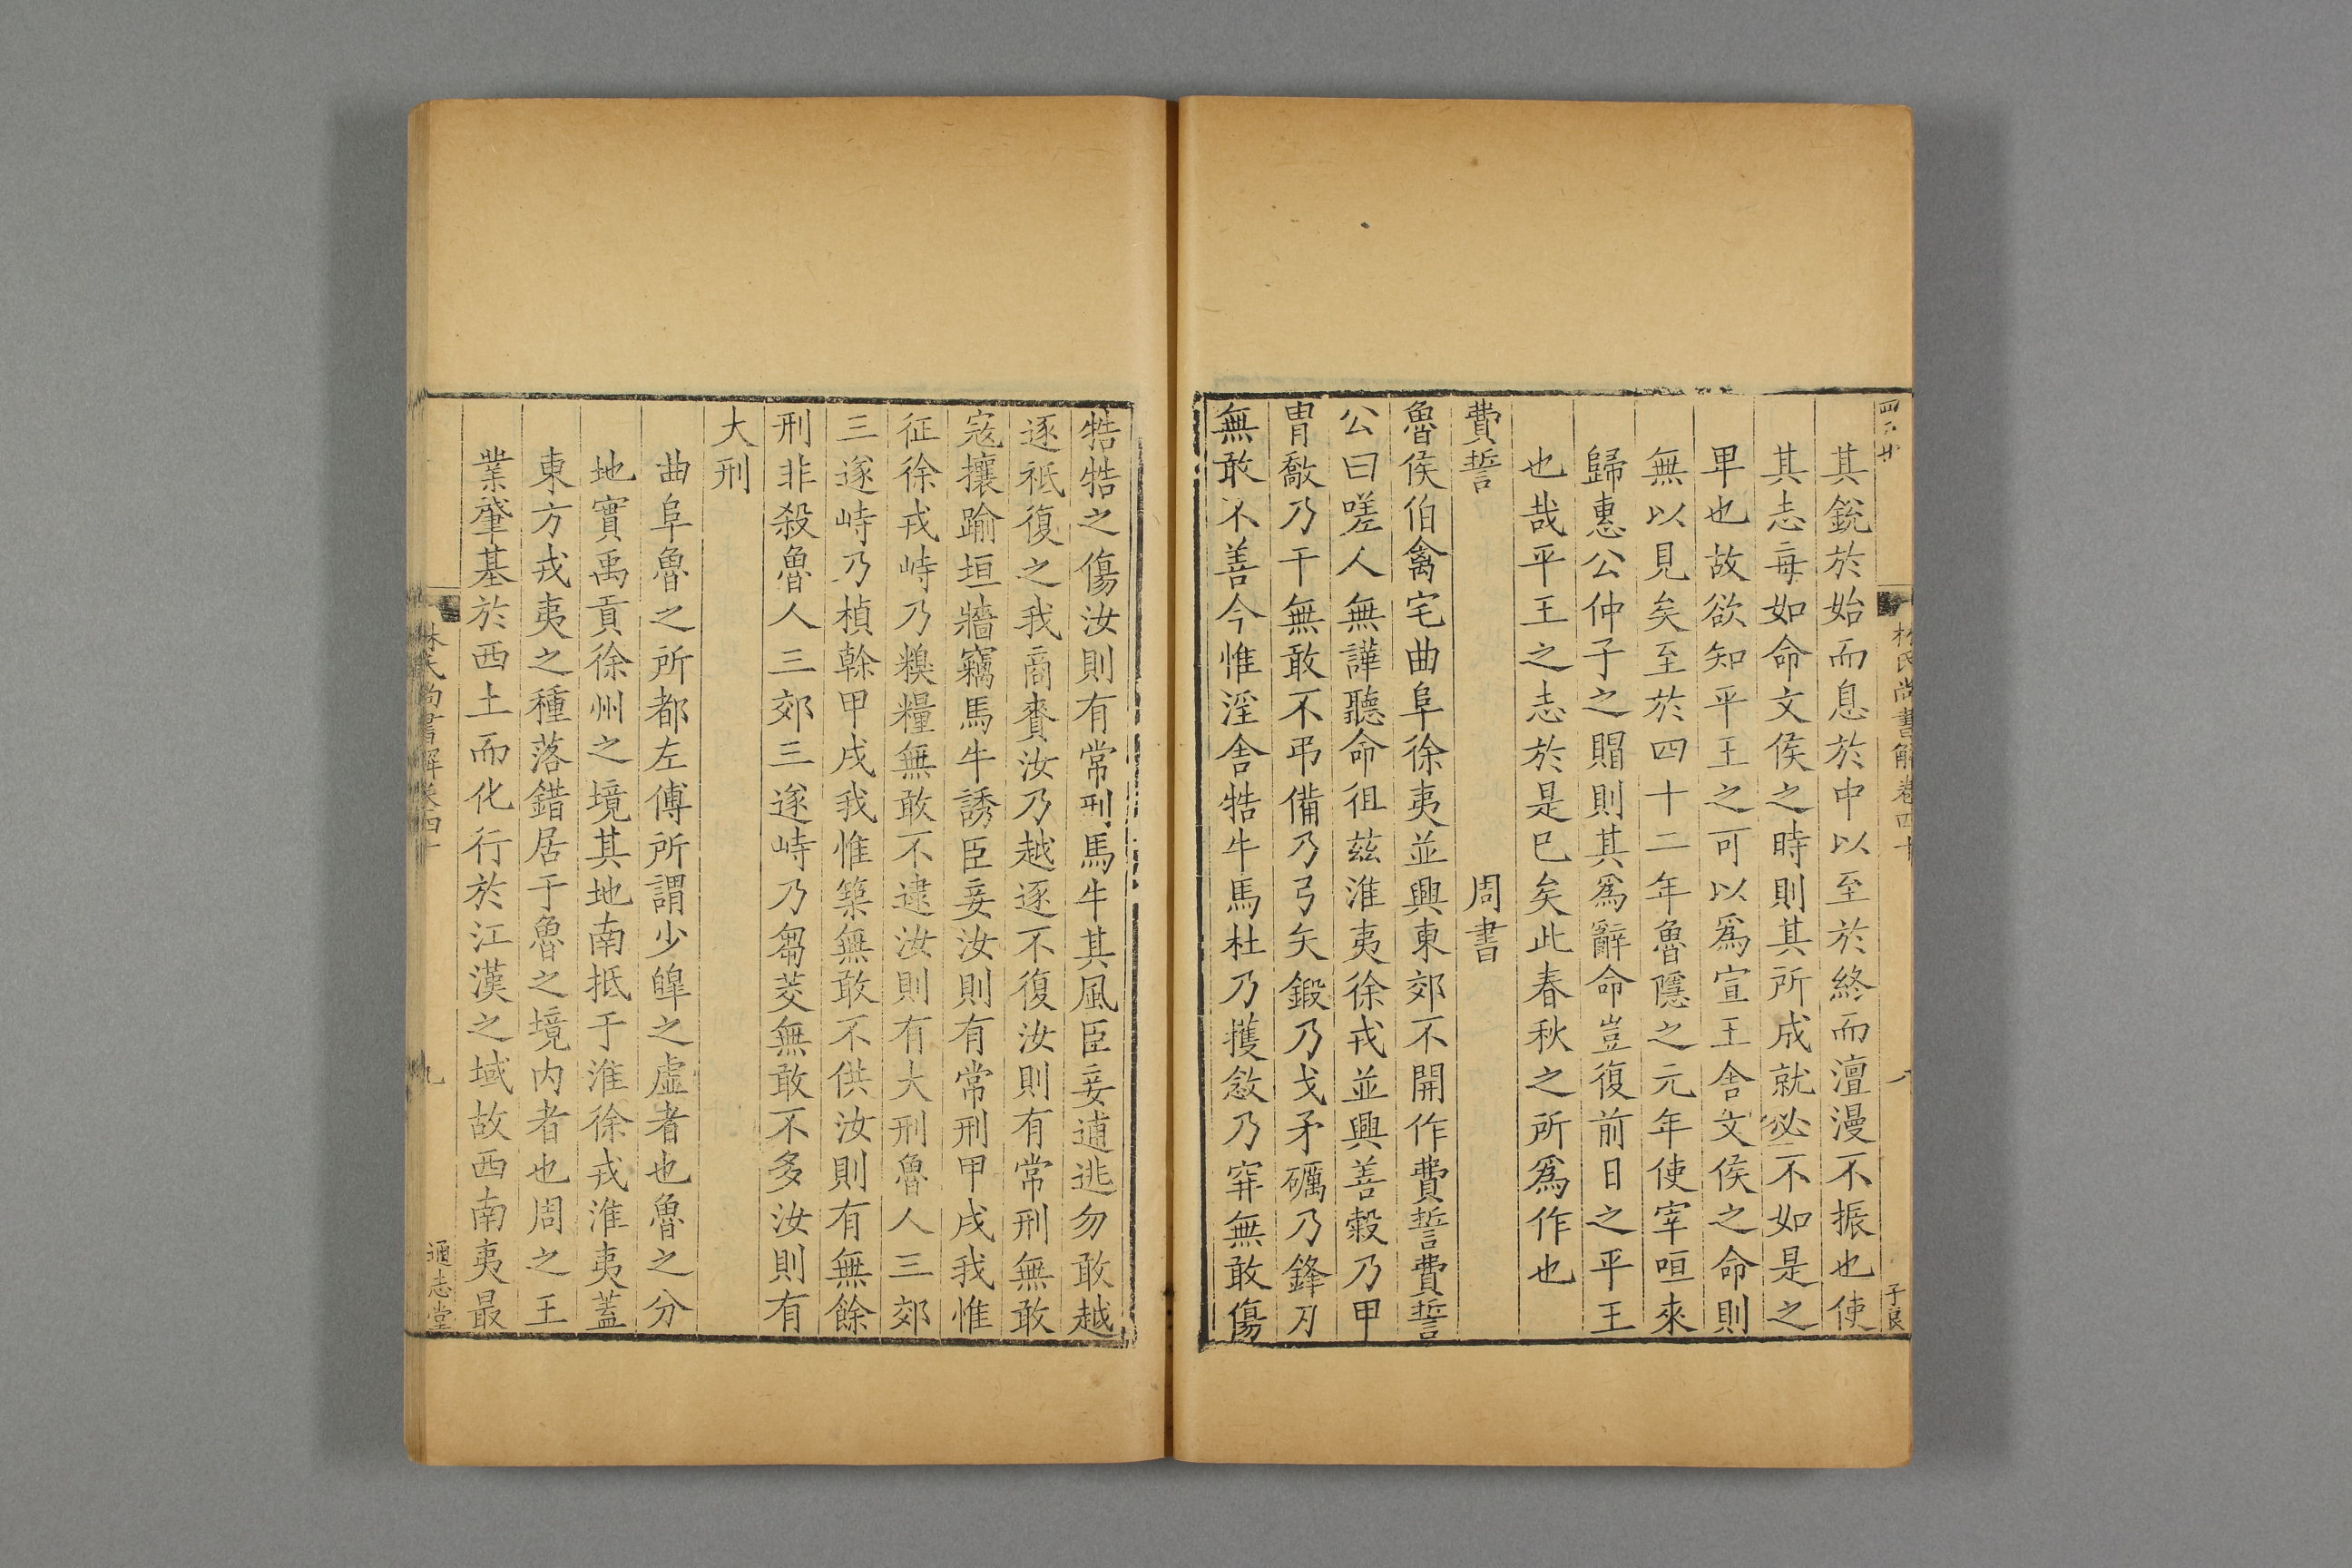 林氏尚書解卷四十 八 子良
其銳於始而息於中以至於終而澶漫不振也使
其志每如命文侯之時則其所成就必不如是之
甲也故欲知平王之可以爲宣王舍文侯之命則
無以見矣至於四十二年魯隱之元年使宰咺來
歸惠公仲子之賵則其爲辭命豈復前日之平王
也哉平王之志於是已矣此春秋之所爲作也
費誓 周書
魯侯伯禽宅曲阜徐夷並興東郊不開作費誓費誓
公曰嗟人無譁聽命徂茲淮夷徐戎並興善敹乃甲
冑敿乃干無敢不弔備乃弓矢鍛乃戈矛礪乃鋒刃
無敢不善今惟淫舍牿牛馬杜乃擭敜乃穽無敢傷
牿牿之傷汝則有常刑馬牛其風臣妾逋逃勿敢越
逐祗復之我商賚汝乃越逐不復汝則有常刑無敢
寇攘踰垣牆竊馬牛誘臣妾汝則有常刑甲戌我惟
征徐戎峙乃糗糧無敢不逮汝則有大刑魯人三郊
三遂峙乃楨榦甲戌我惟築無敢不供汝則有無餘
刑非殺魯人三郊三遂峙乃芻茭無敢不多汝則有
大刑
曲阜魯之所都左傅所謂少皥之虛者也魯之分
地實禹貢徐州之境其地南抵于淮徐戎淮夷蓋
東方戎夷之種落錯居于魯之境内者也周之王
業肇基於西土而化行於江漢之域故西南夷最
林氏尚書解卷四十 九 通志堂